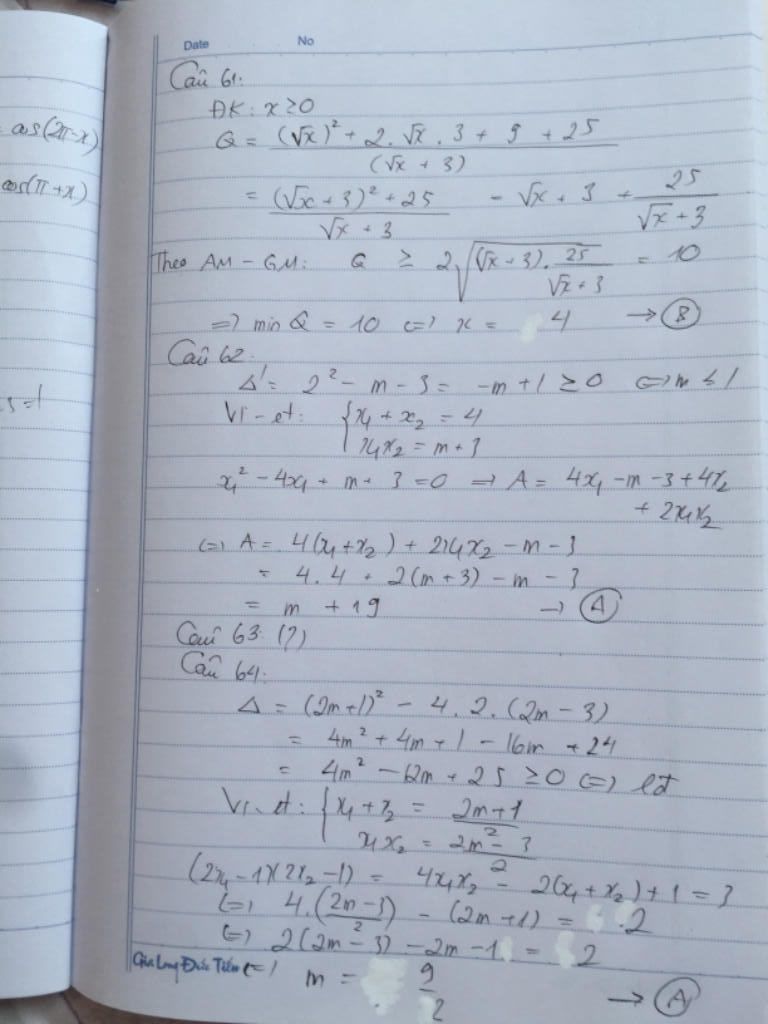 Date No
Câu 61:
ĐK: x ≥ 0
Q = ((√x)² + 2.√x.3 + 9 + 25) / (√x + 3)
= ((√x + 3)² + 25) / (√x + 3) = √x + 3 + 25 / (√x + 3)
Theo AM – GM: Q ≥ 2√((√x + 3). 25 / (√x + 3)) = 10
=> min Q = 10 <=> x = 4 → B
Câu 62:
Δ' = 2² – m – 3 = –m + 1 ≥ 0 <=> m ≤ 1
Vi – et: { x₁ + x₂ = 4
x₁x₂ = m + 3
x₁² – 4x₁ + m + 3 = 0 => A = 4x₁ – m – 3 + 4x₂
+ 2x₁x₂
<=> A = 4(x₁ + x₂) + 2x₁x₂ – m – 3
= 4.4 + 2(m + 3) – m – 3
= m + 19 → A
Câu 63: (?)
Câu 64:
Δ = (2m+1)² – 4.2.(2m – 3)
= 4m² + 4m + 1 – 16m + 24
= 4m² – 12m + 25 ≥ 0 <=> lđ
Vi – et: { x₁ + x₂ = (2m + 1) / 2
x₁x₂ = (2m – 3) / 2
(2x₁ – 1)(2x₂ – 1) = 4x₁x₂ – 2(x₁ + x₂) + 1 = 3
<=> 4.((2m – 3) / 2) – (2m + 1) = 2
<=> 2(2m – 3) – 2m – 1 = 2
<=> m = 9 / 2 → A
Gia Long Đức Tiến
cos(2π – x)
cos(π + x)